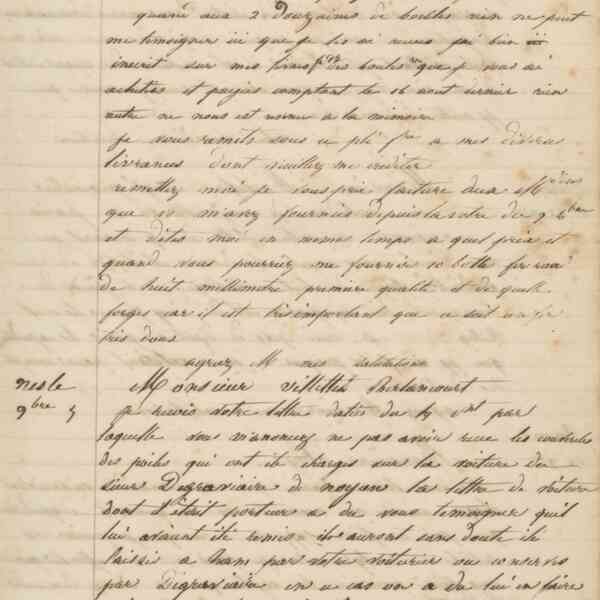 quand aux 2 douzaines de boules rien ne peut
me temoigner ici que je les ai reçues j'ai bien
inscrit sur mes livres des boules que je vous ai
achetées et payées comptant le 16 aout dernier rien
autre ne nous est venu a la memoire
je vous remets sous ce pli fre a mes divers
livrances dont veuillez me crediter
remettez moi je vous prie facture des Mdises
que v m'avez fournies depuis la votre du 9 8bre
et dites moi en meme temps a quel prix et
quand vous pourriez me fournir 10 botte fer rond
de huit millimetre premiere qualité et de quelle
forges car il est tres important que ce soit un fer
tres doux
agreez M mes salutations
nesle Monsieur Villette Berlancourt
9bre 5 je reçois votre lettre datée du ct par
laquelle vous m'anoncez ne pas avoir recu les couvercles
des poeles qui ont ete charges sur la voiture du
sieur de noyon la lettre de voiture
dont il etait porteur a du vous temoigner qu'il
lui avaient ete remis ils auront sans doute ete
laissé a ham par votre voiturier ou conservés
par en ce cas on a du lui en faire